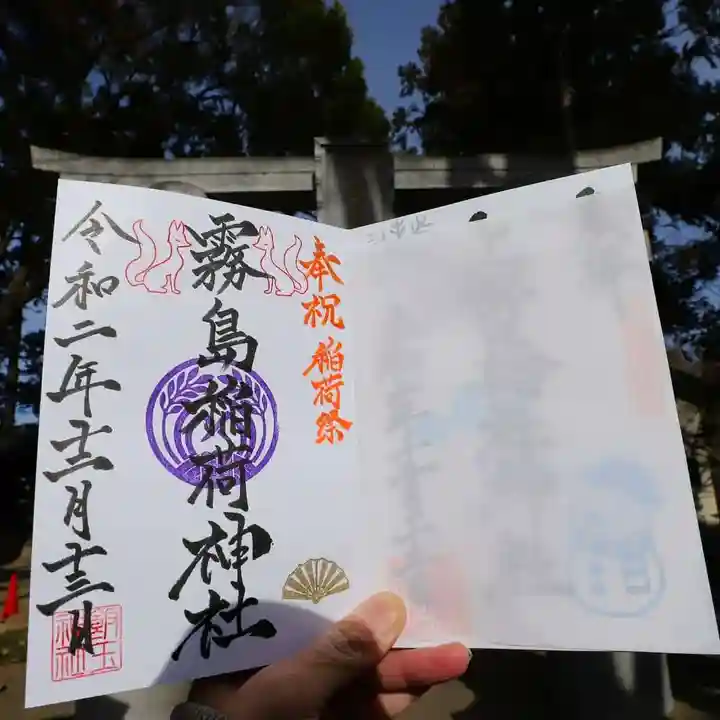 奉祝 稲荷祭
霧島稲荷神社
令和二年十二月十三日